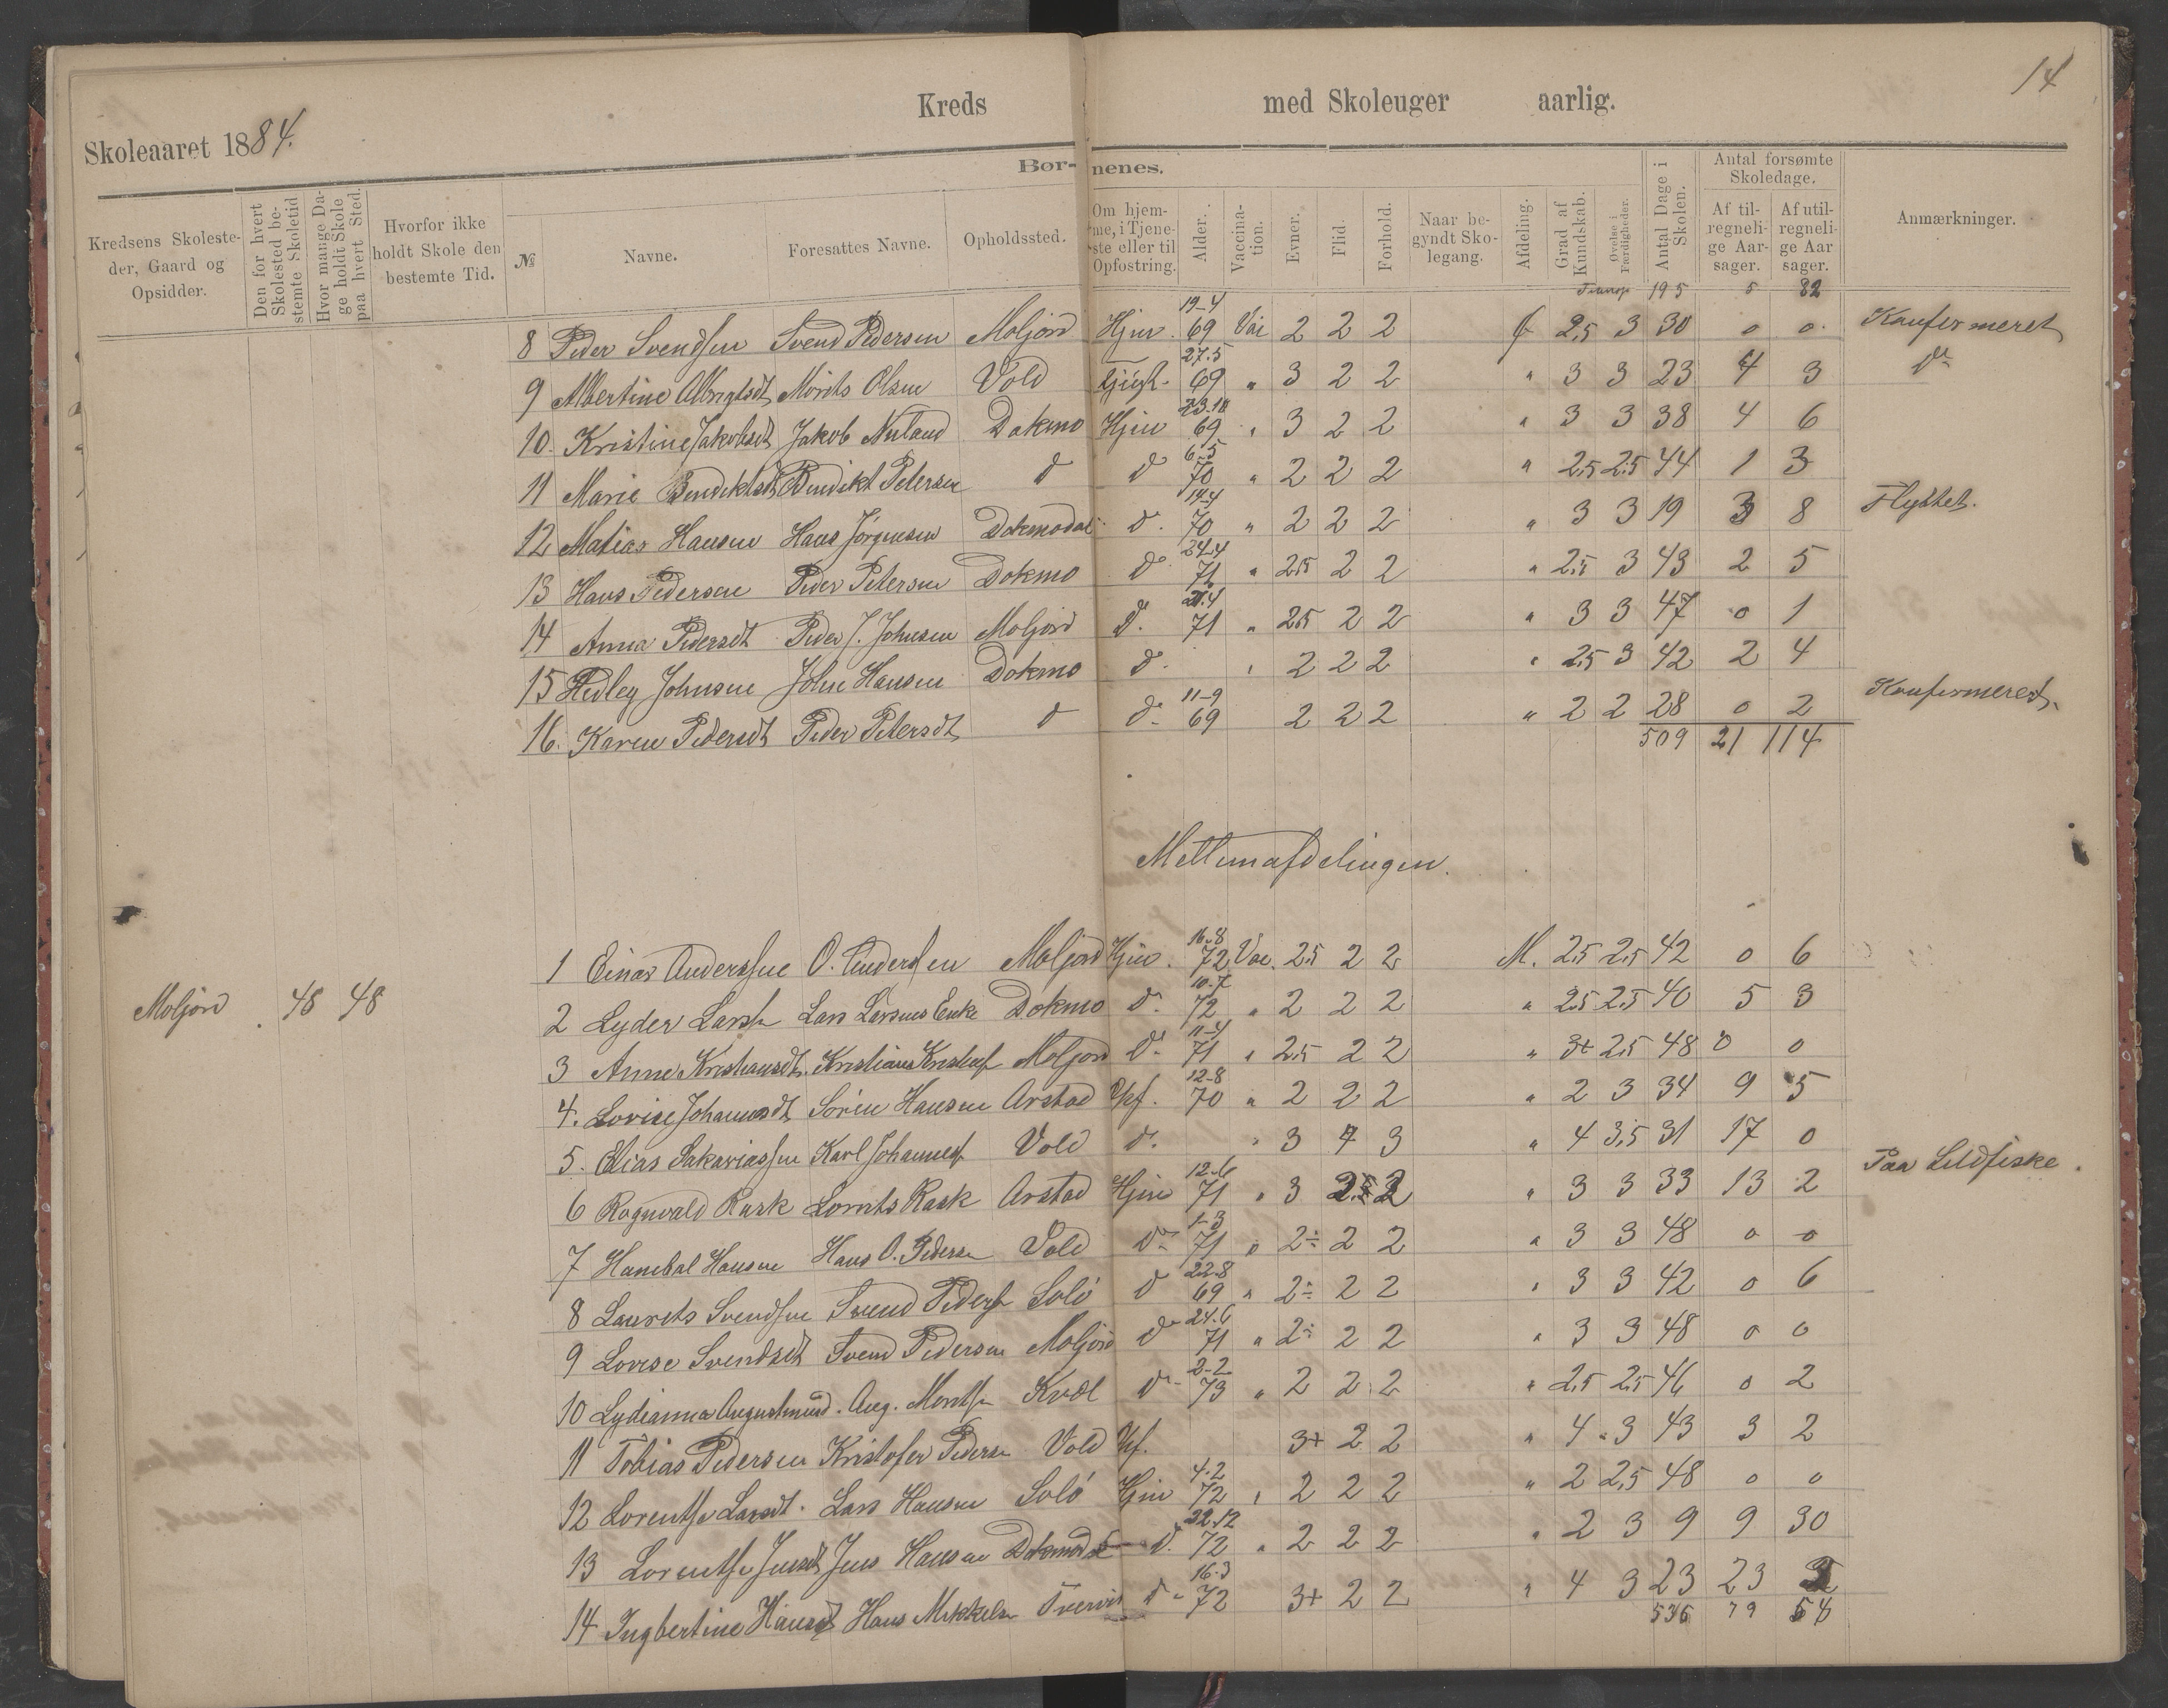 14
Kreds med Skoleuger aarlig.
Skoleaaret 1884.
Bør- nenes.
Kredsens Skoleste- der, Gaard og Opsidder.
Den for hvert Skolested be- stemte Skoletid
Hvor mange Da- ge holdt Skole paa hvert Sted.
Hvorfor ikke holdt Skole den bestemte Tid.
№
Navne.
Foresattes Navne.
Opholdssted.
Om hjem- me, i Tjene- ste eller til Opfostring.
Alder.
Vaccina- tion.
Evner.
Flid.
Forhold.
Naar be- gyndt Sko- legang.
Afdeling.
Grad af Kundskab.
Øvelse i Færdigheder.
Antal Dage i Skolen.
Antal forsømte Skoledage.
Af til- regneli- ge Aar- sager.
Af util- regneli- ge Aar sager.
Anmærkninger.
195 5 82
8 Peder Svendsen Svend Pedersen Moljord Hjem. 19-4 69 Vac 2 2 2 2,5 3 30 0 0 Konfermeret
9 Albertine Albrigtsdt Morits Olsen Vold 27.5 69 " 3 2 2 " 3 3 23 4 3 do
10. Kristine Jakobsdt Jakob Nuland Dokmo Hjem 23.10 69 " 3 2 2 " 3 3 38 4 6
11 Marie Bendiktsdt Bendikt Petersen d d 6-5 70 " 2 2 2 " 2,5 2,5 44 1 3
12 Matias Hansen Hans Jörgensen Dokmodal d. 14-4 70 " 2 2 2 " 3 3 19 3 8 Flyttet.
13 Hans Pedersen Peder Petersen Dokmo d 24-4 71 " 2,5 2 2 " 2,5 3 43 2 5
14 Anna Pedersdt Peder J. Johnsen Moljord d. 21.4 71 " 2,5 2 2 " 3 3 47 0 1
15 Hedley Johnsen John Hansen Dokmo d. " 2 2 2 " 2,5 3 42 2 4
16. Karen Pedersdt Peder Petersdt d d. 11-9 69 2 2 2 " 2 2 28 0 2 Konfermeret.
509 21 114
Mellemafdelingen.
1 Einar Anderssen O. Anderssen Moljord Hjem. 16.8 72 Vac. 2,5 2 2 M. 2,5 2,5 42 0 6
Moljord . 48 48
2 Lyder Larss Lars Larsens Enke Dokmo d. 10.7 72 " 2 2 2 " 2,5 2,5 40 5 3
3 Anne Kristiansdt. Kristians Moljord d. 11-4 71 " 2,5 2 2 " 3+ 2,5 48 0 0
4. Lovise Johannsdt Sören Hansen Arstad Opf. 12-8 70 " 2 2 2 " 2 3 34 9 5
5. Elias Sakariassen Karl Johannes Vold d. " 3 4 3 " 4 3,5 31 17 0
6 Ragnvald Rask Lorents Rask Arstad Hjem 12-6 71 " 3 " 3 3 33 13 2 Paa Sildfiske.
7 Hanibal Hansen Hans O. Pedersen Vold d. 1-3 71 " 2÷ 2 2 " 3 3 48 0 0
8 Laurets Svendsen Svend Peders Solö d 22-8 69 " 2÷ 2 2 " 3 3 42 0 6
9 Lovise Svendsdt Svend Pedersen Moljord d 24.6 71 " 2÷ 2 2 " 3 3 48 0 0
10 Lydianna Augustinusd. Aug. Kvæl d. 2-2 73 " 2 2 2 " 2,5 2,5 46 0 2
11 Tobias Pedersen Kristofer Pedersen Vold Opf. 3+ 2 2 " 4 3 43 3 2
12 Lorentse Larsdt. Lars Hansen Solö Hjem 4.2 72 " 2 2 2 " 2 2,5 48 0 0
13 Lorentse Jensdt Jens Hansen Dokmodal d. 22.12 72 " 2 2 2 " 2 3 9 9 30
14 Ingbertine Hansdt Hans Mikkelsen d. 16.3 72 3+ 2 2 " 4 3 23 23
79